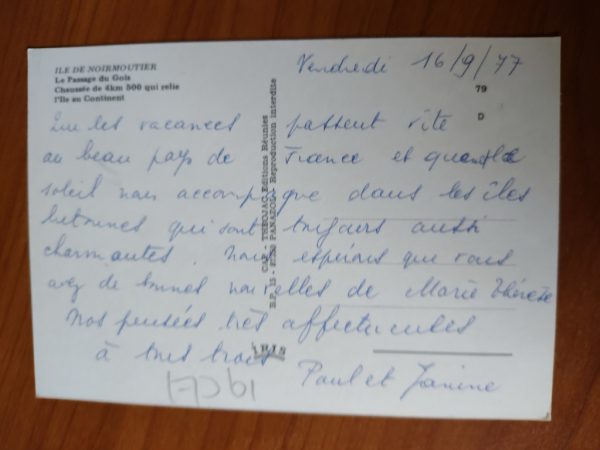 ILE DE NOIRMOUTIER
Le Passage du Gois
Chaussée de 4km 500 qui relie
l'Ile au Continent
Vendredi 16/9/77
79
D
Que les vacances passent vite
au beau pays de France et quand le
soleil nous accompagne dans les îles
bretonnes qui sont toujours aussi
charmantes. Nous espérons que vous
avez de bonnes nouvelles de Marie Thérèse
Nos pensées très affectueuses
à tous trois
Paul et Janine
CAP - THEOJAC Editions Réunies
B.P. 15 - PANAZOL - Reproduction interdite
IRIS